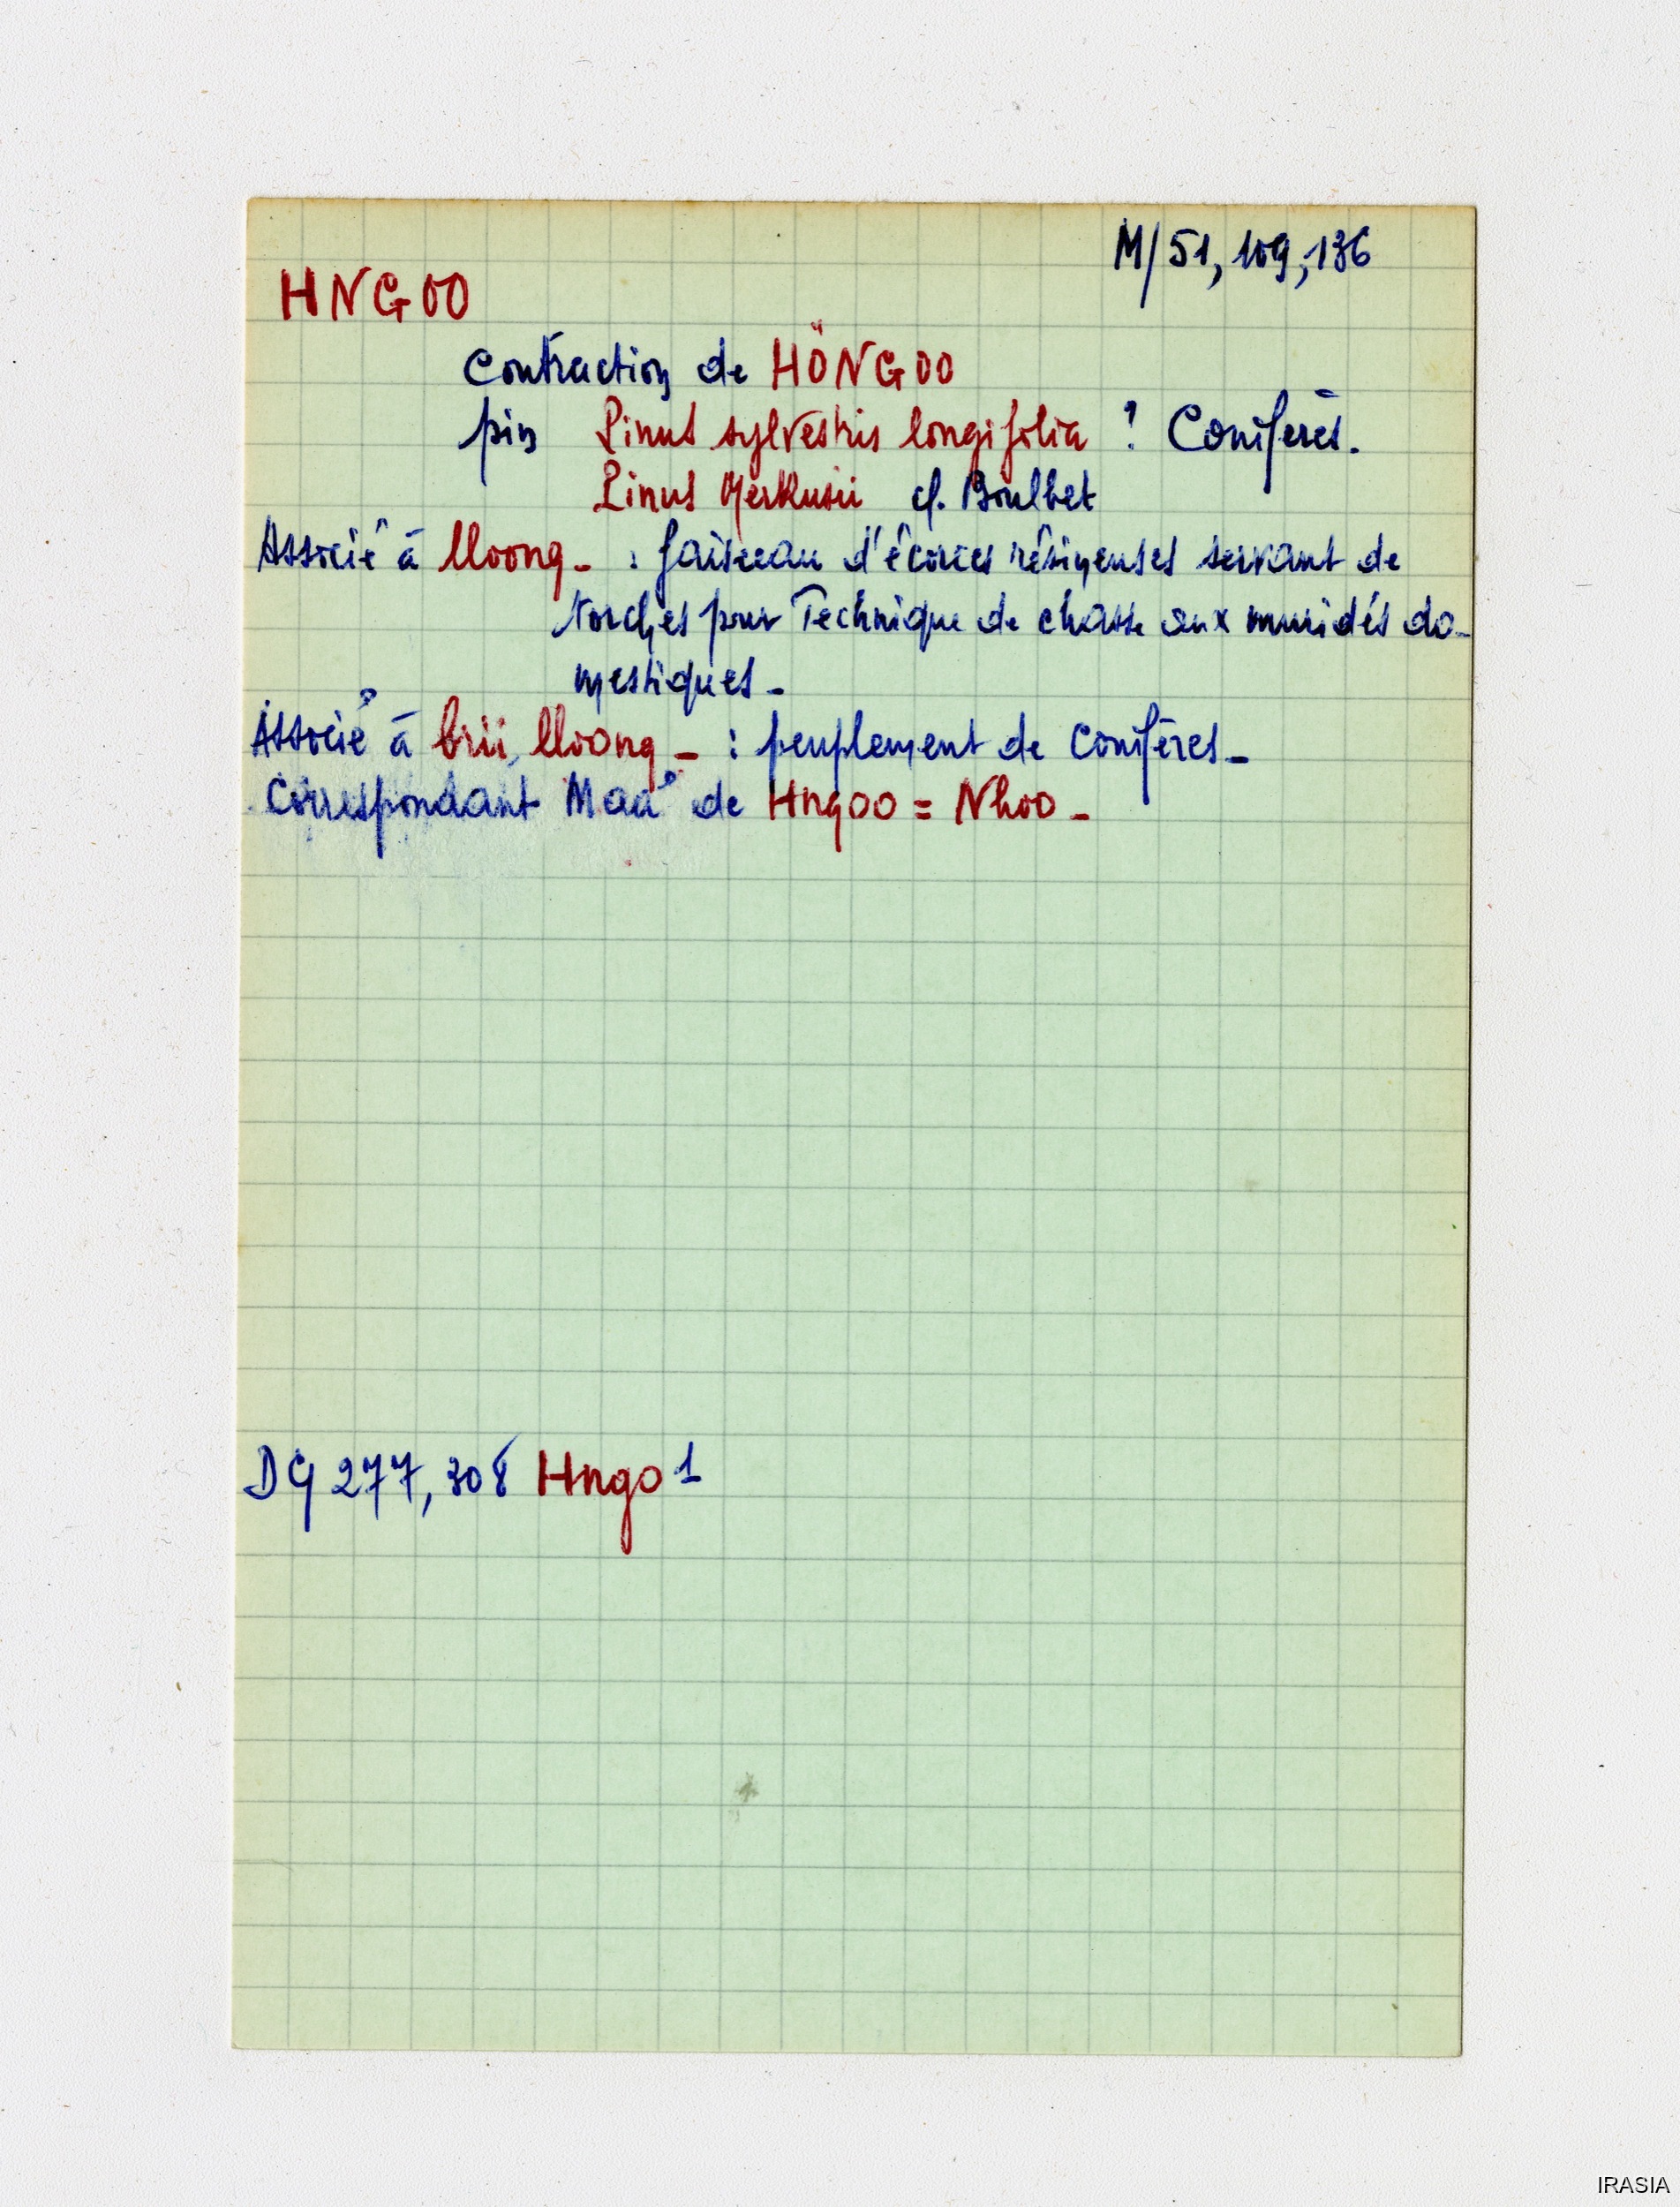 M/51, 109, 136
HNGOO
Contraction de HÖNGOO
pin Pinus sylvestris longifolia ? Conifères.
Pinus Merkusii cf. Boulbet
Associé à lloong - : faisceau d'écorces résineuses servant de
torches pour Technique de chasse aux muridés do-
mestiques -
Associé à brii, lloong - : peuplement de conifères -
Correspondant Maa' de Hngoo = Nhoo -
DG 277, 308 Hngo 1
IRASIA